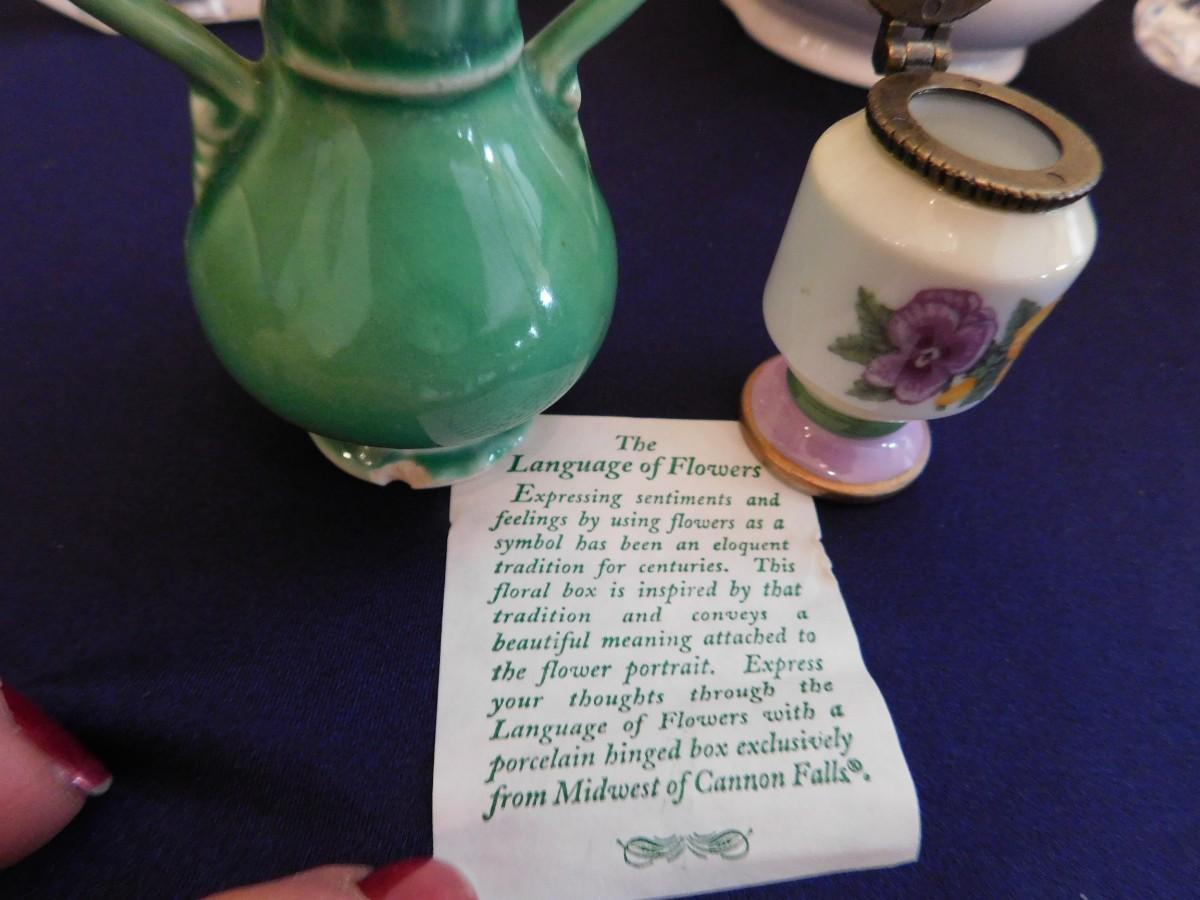 The
Language of Flowers
Expressing sentiments and
feelings by using flowers as a
symbol has been an eloquent
tradition for centuries. This
floral box is inspired by that
tradition and conveys a
beautiful meaning attached to
the flower portrait. Express
your thoughts through the
Language of Flowers with a
porcelain hinged box exclusively
from Midwest of Cannon Falls®.